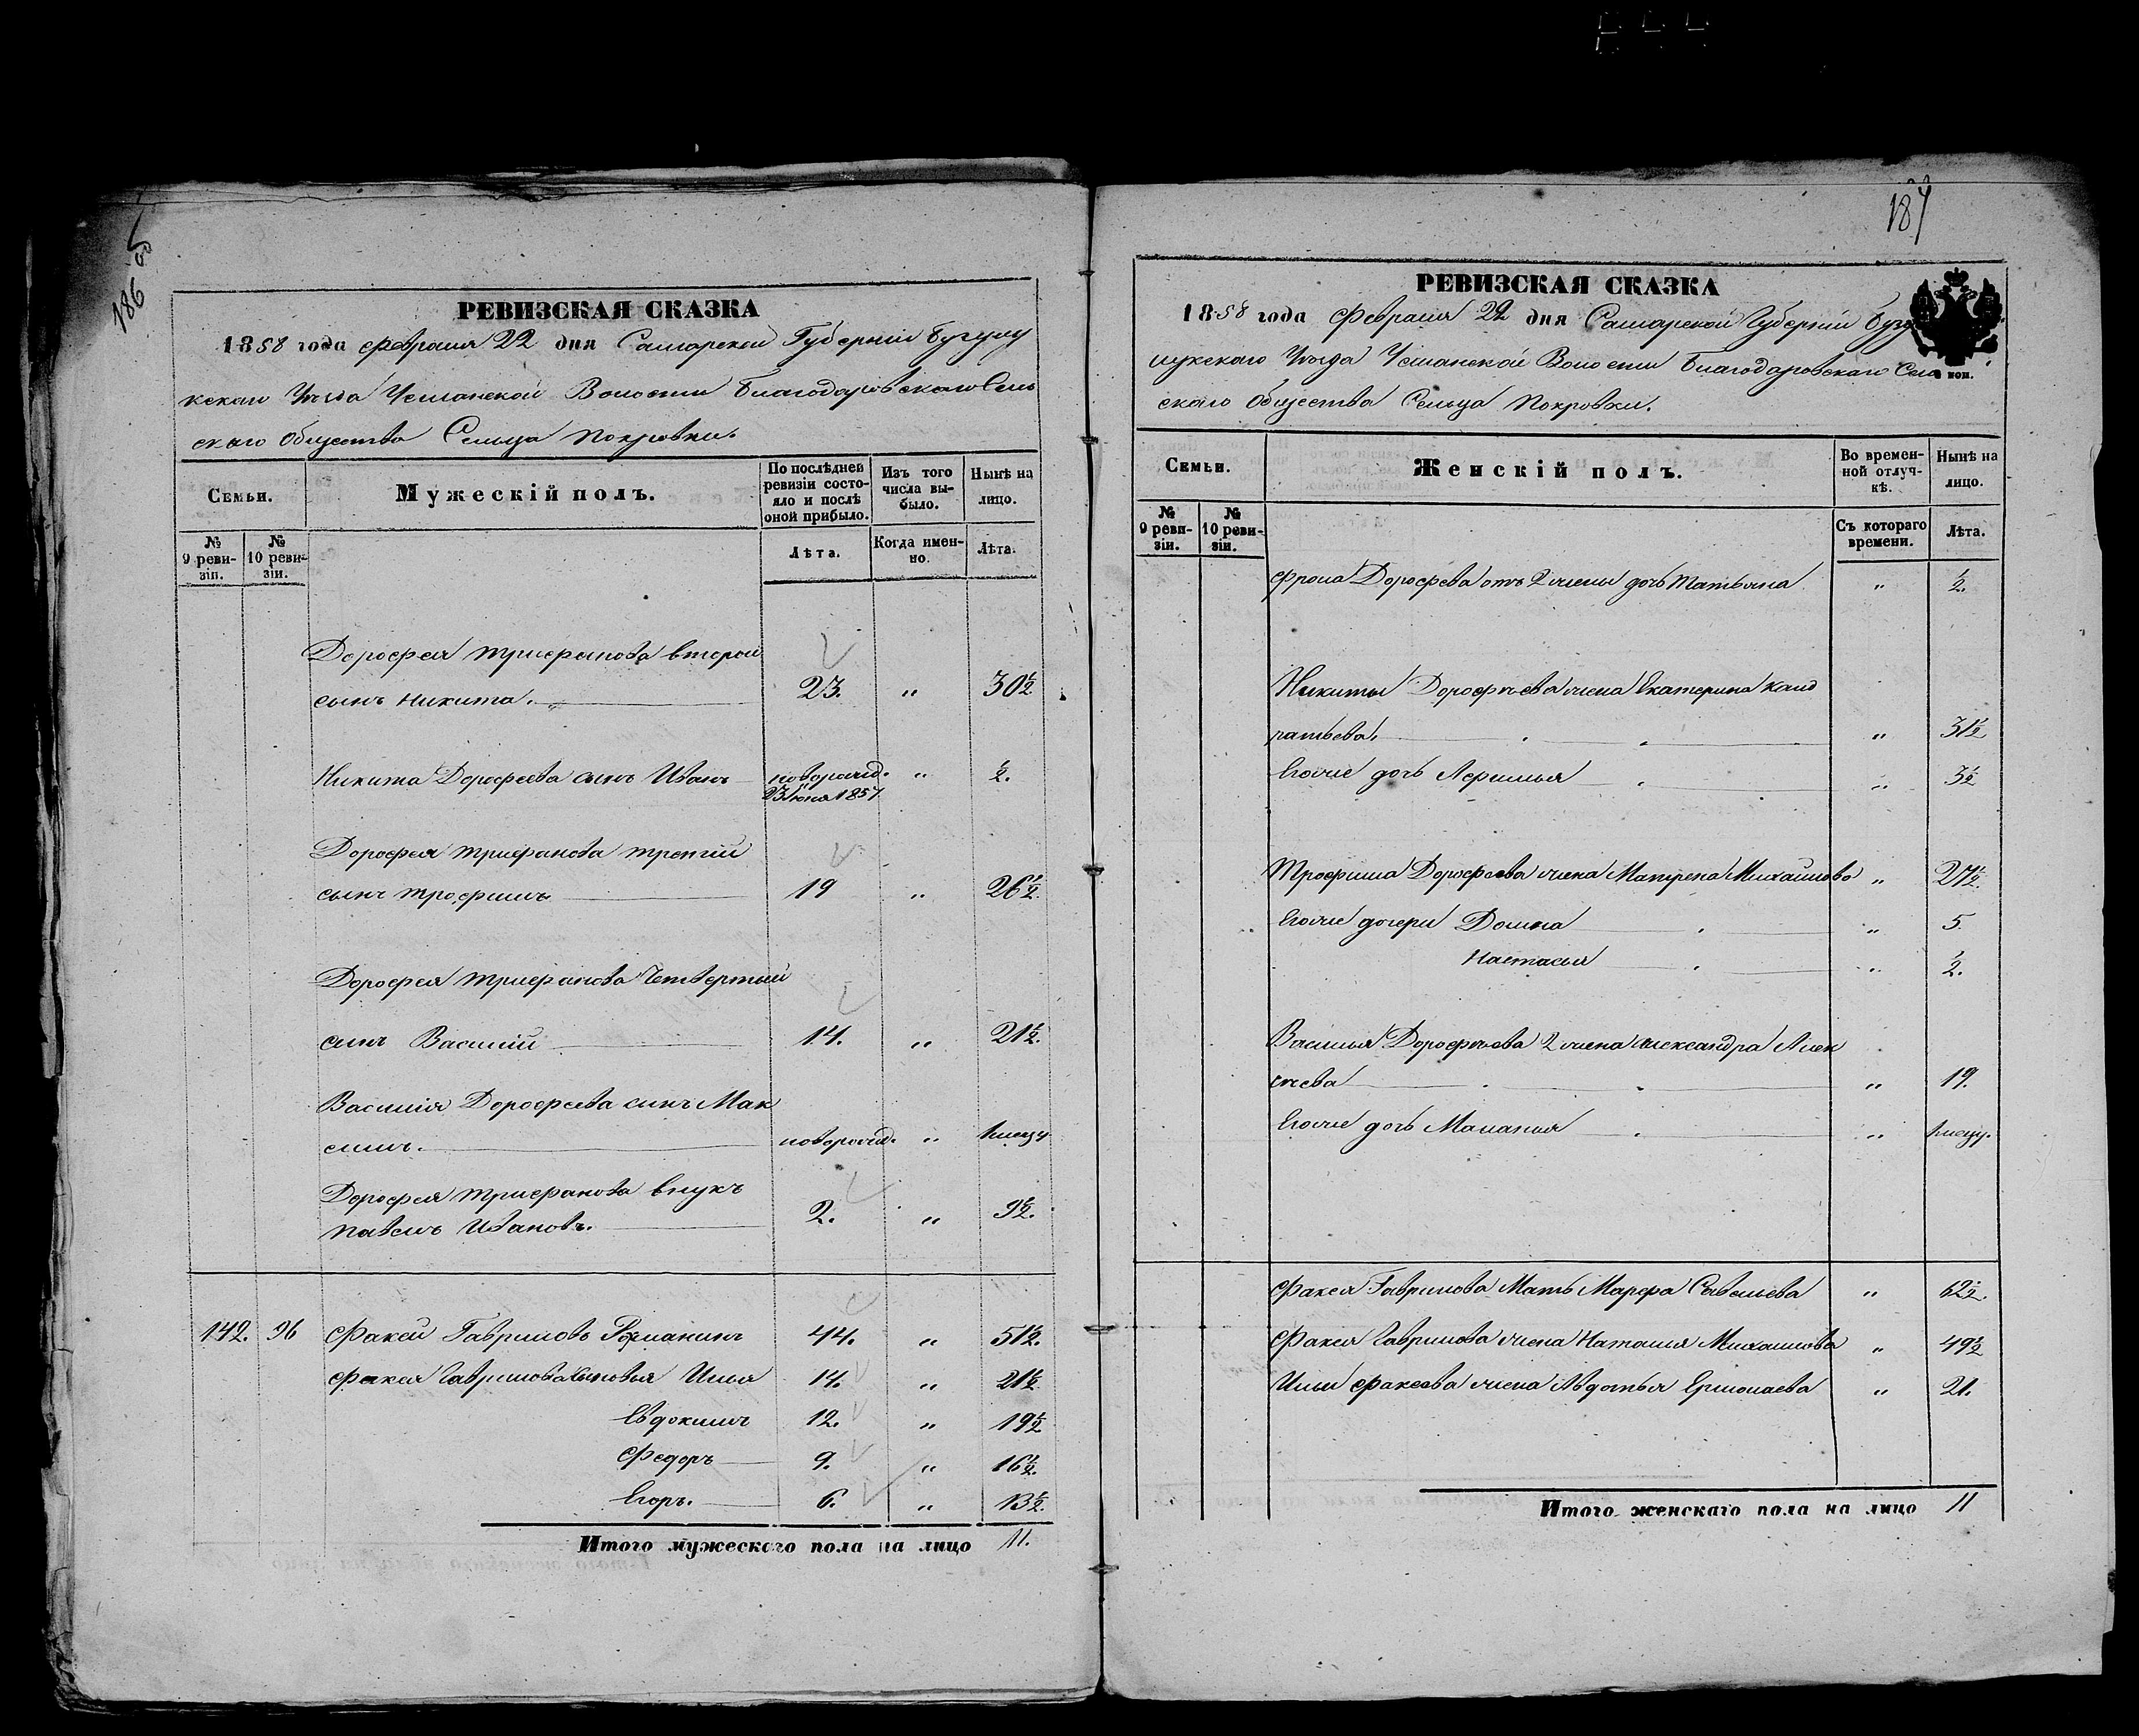 186 об
РЕВИЗСКАЯ СКАЗКА
1858 года Февраля 22 дня Самарской Губерніи Бугуру
скаго Уезда Чесманской Волости Благодаровскаго Сель
скаго Общества Сельца Покровки.
Семьи.
Мужескій полъ.
По послѣдней ревизіи состояло и послѣ оной прибыло.
Изъ того числа выбыло.
Нынѣ на лицо.
№ 9 ревизіи.
№ 10 ревизіи.
Лѣта.
Когда именно.
Лѣта.
Дорофея Трифанова второй
сынъ Никита. 23. " 30½
Никита Дорофеева сынъ Иванъ новорожд. " ½.
23 Июня 1857
Дорофея Трифанова третій
сынъ Трофимъ 19 " 26½.
Дорофея Трифанова Четвертый
сынъ Василій 14. " 21½.
Василія Дорофеева сынъ Мак
симъ. новорожд. " 1 месяц
Дорофея Трифанова внукъ
Павелъ Ивановъ. 2. " 9½.
142. 96 Факей Гавриловъ 44. " 51½.
Факея Гаврилова Сыновья Илья 14. " 21½
Евдокимъ 12. " 19½
Федоръ 9. " 16½.
Егоръ. 6. " 13½.
Итого мужескаго пола на лицо 11.
187
РЕВИЗСКАЯ СКАЗКА
1858 года Февраля 22 дня Самарской Губерніи Бузу
лукскаго Уезда Чесманской Волости Благодаровскаго Сель
скаго Общества Сельца Покровки.
Семьи.
Женскій полъ.
Во временной отлучкѣ.
Нынѣ на лицо.
№ 9 ревизіи.
№ 10 ревизіи.
Съ котораго времени.
Лѣта.
Фрола Дорофева отъ 2 жены дочь Татьяна " ½.
Никиты Дорофѣева жена ЕкатеринаКанд
ратьева. " 31½
Егоже дочь Афимья " 3½
Трофима Дорофеева жена Матрена Михайлова " 27½.
Егоже дочери Домна " 5.
Настасья " ½.
Василья Дорофѣева 2 жена Александра Алек
сѣева " 19.
Егоже дочь Маланья " 1 месяц.
Факея Гаврилова Мать Марфа Савельева " 62½.
Факея Гаврилова жена Наталья Михаилова " 49½
Ильи Факеева жена Авдотья Ермолаева " 21.
Итого женскаго пола на лицо 11